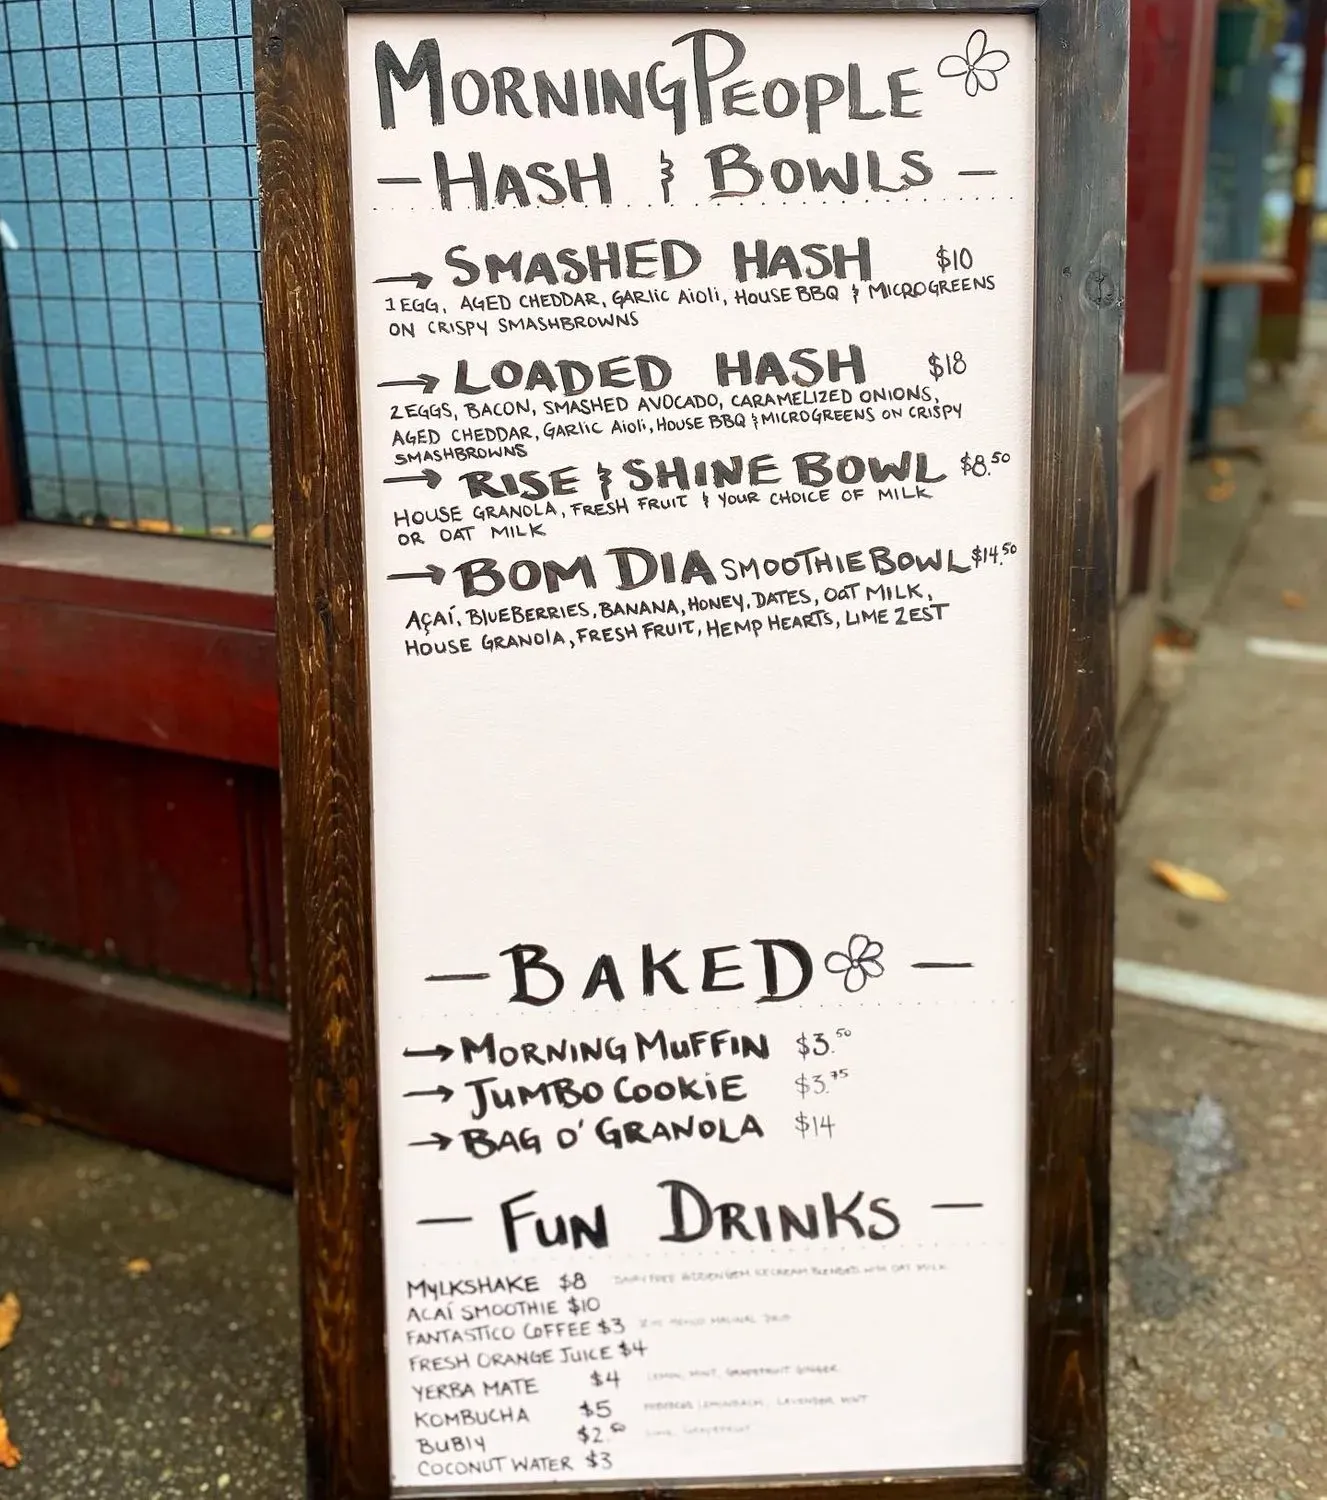 MORNING PEOPLE
- HASH & BOWLS -
→ SMASHED HASH $10
1 EGG, AGED CHEDDAR, GARLIC AIOLI, HOUSE BBQ & MICROGREENS
ON CRISPY SMASHBROWNS
→ LOADED HASH $18
2 EGGS, BACON, SMASHED AVOCADO, CARAMELIZED ONIONS,
AGED CHEDDAR, GARLIC AIOLI, HOUSE BBQ & MICROGREENS ON CRISPY
SMASHBROWNS
→ RISE & SHINE BOWL $8.50
HOUSE GRANOLA, FRESH FRUIT & YOUR CHOICE OF MILK
OR OAT MILK
→ BOM DIA SMOOTHIE BOWL $14.50
AÇAÍ, BLUEBERRIES, BANANA, HONEY, DATES, OAT MILK,
HOUSE GRANOLA, FRESH FRUIT, HEMP HEARTS, LIME ZEST
- BAKED -
→ MORNING MUFFIN $3.50
→ JUMBO COOKIE $3.75
→ BAG O' GRANOLA $14
- FUN DRINKS -
MYLKSHAKE $8 BLENDED WITH OAT MILK
ACAÍ SMOOTHIE $10
FANTASTICO COFFEE $3
FRESH ORANGE JUICE $4
YERBA MATE $4 LEMON, MINT, GRAPEFRUIT GINGER
KOMBUCHA $5 LAVENDER MINT
BUBLY $2.50 LIME, GRAPEFRUIT
COCONUT WATER $3